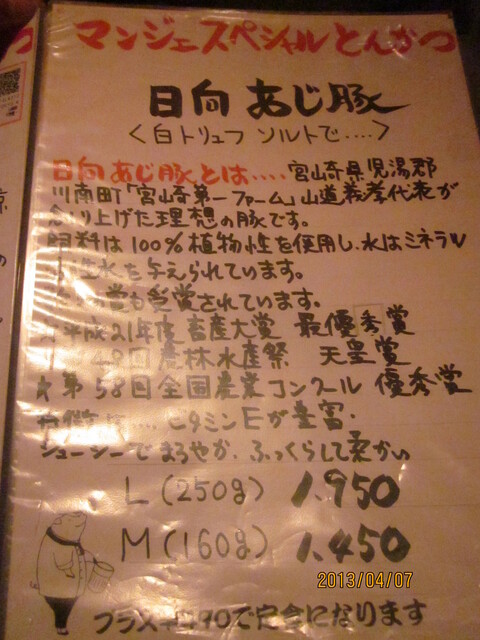 マンジェスペシャルとんかつ
日向あじ豚
<白トリュフ ソルトで....>
日向あじ豚とは.....宮崎県児湯郡
川南町「宮崎第一ファーム」山道義孝代表が
り上げた理想の豚です。
飼料は100%植物性を使用し、水はミネラル
水を与えられています。
賞も受賞されています。
平成21年度畜産大賞 最優秀賞
48回農林水産祭 天皇賞
★第58回全国農業コンクール 優秀賞
ビタミンEが豊富・
ジューシーでまろやか、ふっくらして柔かい
L(250g) 1,950
M(160g) 1,450
プラス¥490で定食になります
2013/04/07